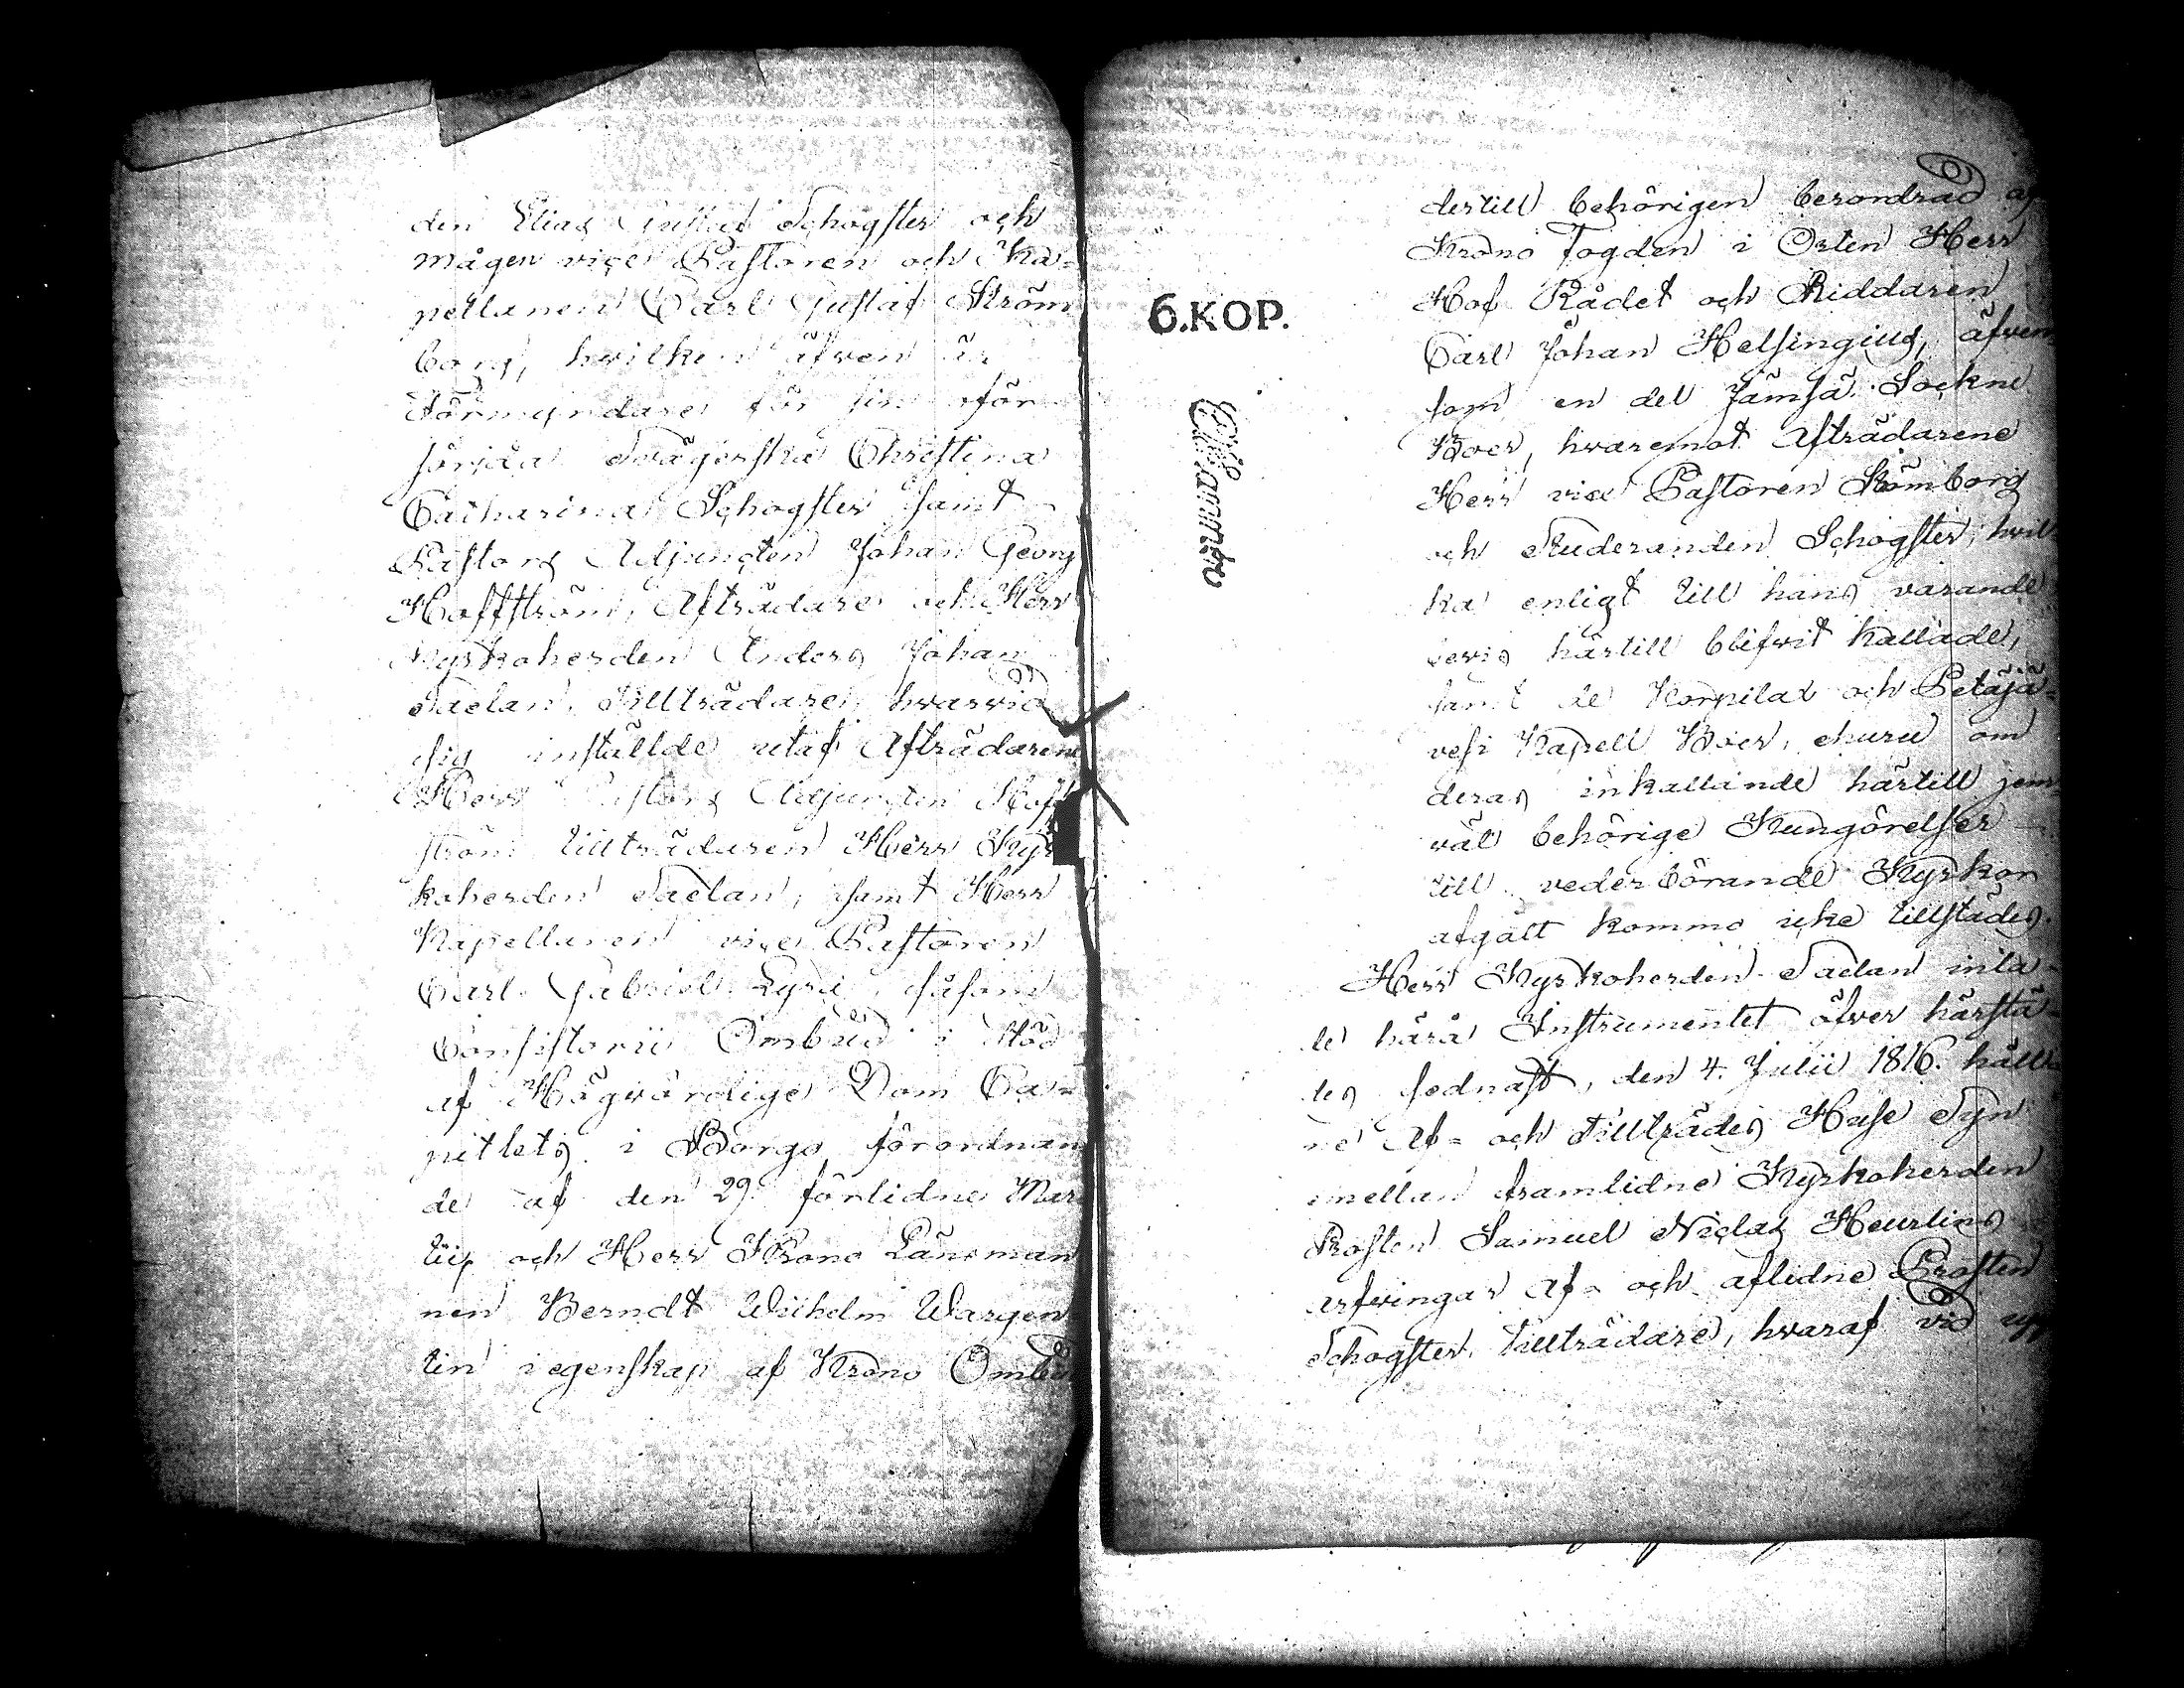 den Elias Gustaf Schogster och
mågen vice Pastoren och Ka-
pellanen Carl Gustaf Ström
borg, hvilken äfven är
Förmyndare för sin oför
sörjda Svägerska Christina
Catharina Schogster samt
Pastors Adjuncten Johan Georg
Hoffström, Afträdare och Herr
Kyrkoherden Anders Johan
Saelan, Tillträdare, hvarvid
sig inställde utaf Afträdarene
Herr Pastors Adjuncten Hoff
ström tillträdaren Herr Kyr
koherden Saelan, samt Herr
Kapellanen vice Pastoren
Carl Gabriel Lyra, såsom
Consistorii Ombud i stöd
af Högvördige Dom Ca-
pitlets i Borgo förordnan
de af den 29 förlidne Mar
tii och Herr Krono Länsman
nen Berndt Wilhelm Wargen
tin i egenskap af Krono Ombud
6.KOP.
dertill behörigen beordrad af
Krono Fogden i Orten Herr
Hof Rådet och Riddaren
Carl Johan Helsingius, äfven
som en del Jämsä Sockne
Boer, hvaremot Afträdarene
Herr vice Pastoren Strömborg
och Studeranden Schogster, hvil
ka enligt till hands varande
bevis härtill blifvit kallade,
samt de Korpilax och Petäjä-
vesi Kapell Boer, ehuru om
deras inkallande härtill jem
väl behörige Kungörelser
till vederbörande Kyrkor
afgått kommo icke tillstädes.
Herr Kyrkoherden Saelan inla-
de härå Instrumentet öfver härstä-
des sednast, den 4. Julii 1816. håll
ne Af- och Tillträdes Huse Syn
emellan framlidne Kyrkoherden
Prosten Samuel Niclas Heurlins
arfvingar Af- och aflidne Prosten
Schogster, Tillträdare, hvaraf vid upp